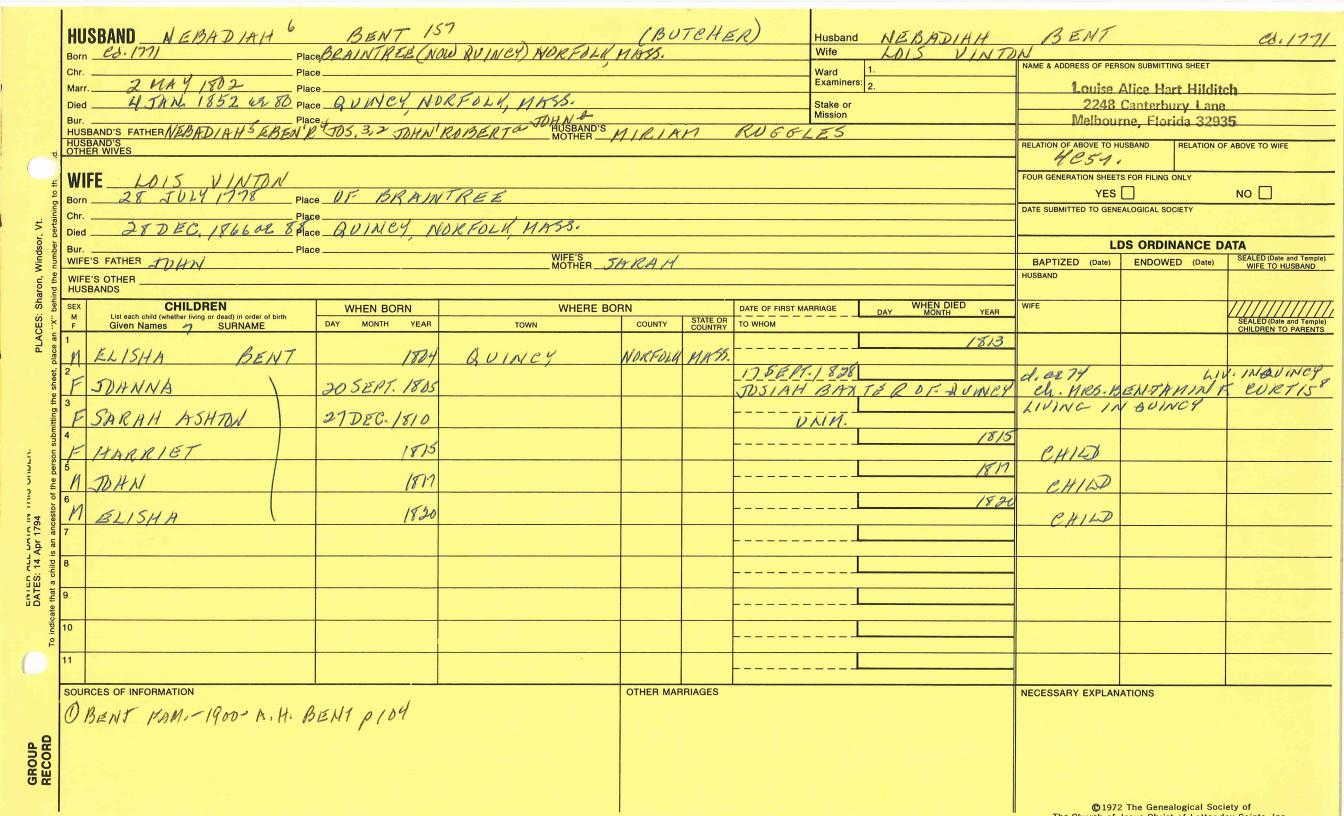 HUSBAND NEBADIAH 6 BENT 157 (BUTCHER)
Born Ca. 1771 Place BRAINTREE (NOW QUINCY) NORFOLK, MASS.
Chr. Place
Marr. 2 MAY 1802 Place
Died 4 JAN. 1852 ae 80 Place QUINCY, NORFOLK, MASS.
Bur. Place
HUSBAND'S FATHER NEBADIAH 5 EBEN'R 4 JOS. 3, 2 JOHN 1 ROBERT a JOHN HUSBAND'S MOTHER MIRIAM RUGGLES
HUSBAND'S OTHER WIVES
Husband NEBADIAH BENT Ca. 1771
Wife LOIS VINTON
Ward Examiners: 1.
2.
Stake or Mission
NAME & ADDRESS OF PERSON SUBMITTING SHEET
Louise Alice Hart Hilditch
2248 Canterbury Lane
Melbourne, Florida 32935
RELATION OF ABOVE TO HUSBAND RELATION OF ABOVE TO WIFE
4C5r.
FOUR GENERATION SHEETS FOR FILING ONLY
YES NO
DATE SUBMITTED TO GENEALOGICAL SOCIETY
WIFE LOIS VINTON
Born 28 JULY 1778 Place OF BRAINTREE
Chr. Place
Died 28 DEC. 1866 ae 88 Place QUINCY, NORFOLK, MASS.
Bur. Place
WIFE'S FATHER JOHN WIFE'S MOTHER SARAH
WIFE'S OTHER HUSBANDS
LDS ORDINANCE DATA
BAPTIZED (Date) ENDOWED (Date) SEALED (Date and Temple) WIFE TO HUSBAND
HUSBAND
WIFE
SEALED (Date and Temple) CHILDREN TO PARENTS
SEX M F
CHILDREN
List each child (whether living or dead) in order of birth
Given Names 7 SURNAME
WHEN BORN
DAY MONTH YEAR
WHERE BORN
TOWN COUNTY STATE OR COUNTRY
DATE OF FIRST MARRIAGE
TO WHOM
WHEN DIED
DAY MONTH YEAR
1 M ELISHA BENT 1804 QUINCY NORFOLK MASS. 1813
2 F JOHANNA 20 SEPT. 1805 17 SEPT. 1828 d. ae 74 LIV. IN QUINCY
JOSIAH BAXTER OF QUINCY Ch. MRS. BENJAMIN F. CURTIS 8
3 F SARAH ASHTON 27 DEC. 1810 UNM. LIVING IN QUINCY
4 F HARRIET 1815 1815 CHILD
5 M JOHN 1817 1817 CHILD
6 M ELISHA 1820 1820 CHILD
7
8
9
10
11
SOURCES OF INFORMATION
① BENT FAM.-1900- A.H. BENT p 104
OTHER MARRIAGES
NECESSARY EXPLANATIONS
©1972 The Genealogical Society of
The Church of Jesus Christ of Latter-day Saints, Inc.
PLACES: Sharon, Windsor, Vt.
DATES: 14 Apr 1794
To indicate that a child is an ancestor of the person submitting the sheet, place an "X" behind the number pertaining to th d.
GROUP RECORD